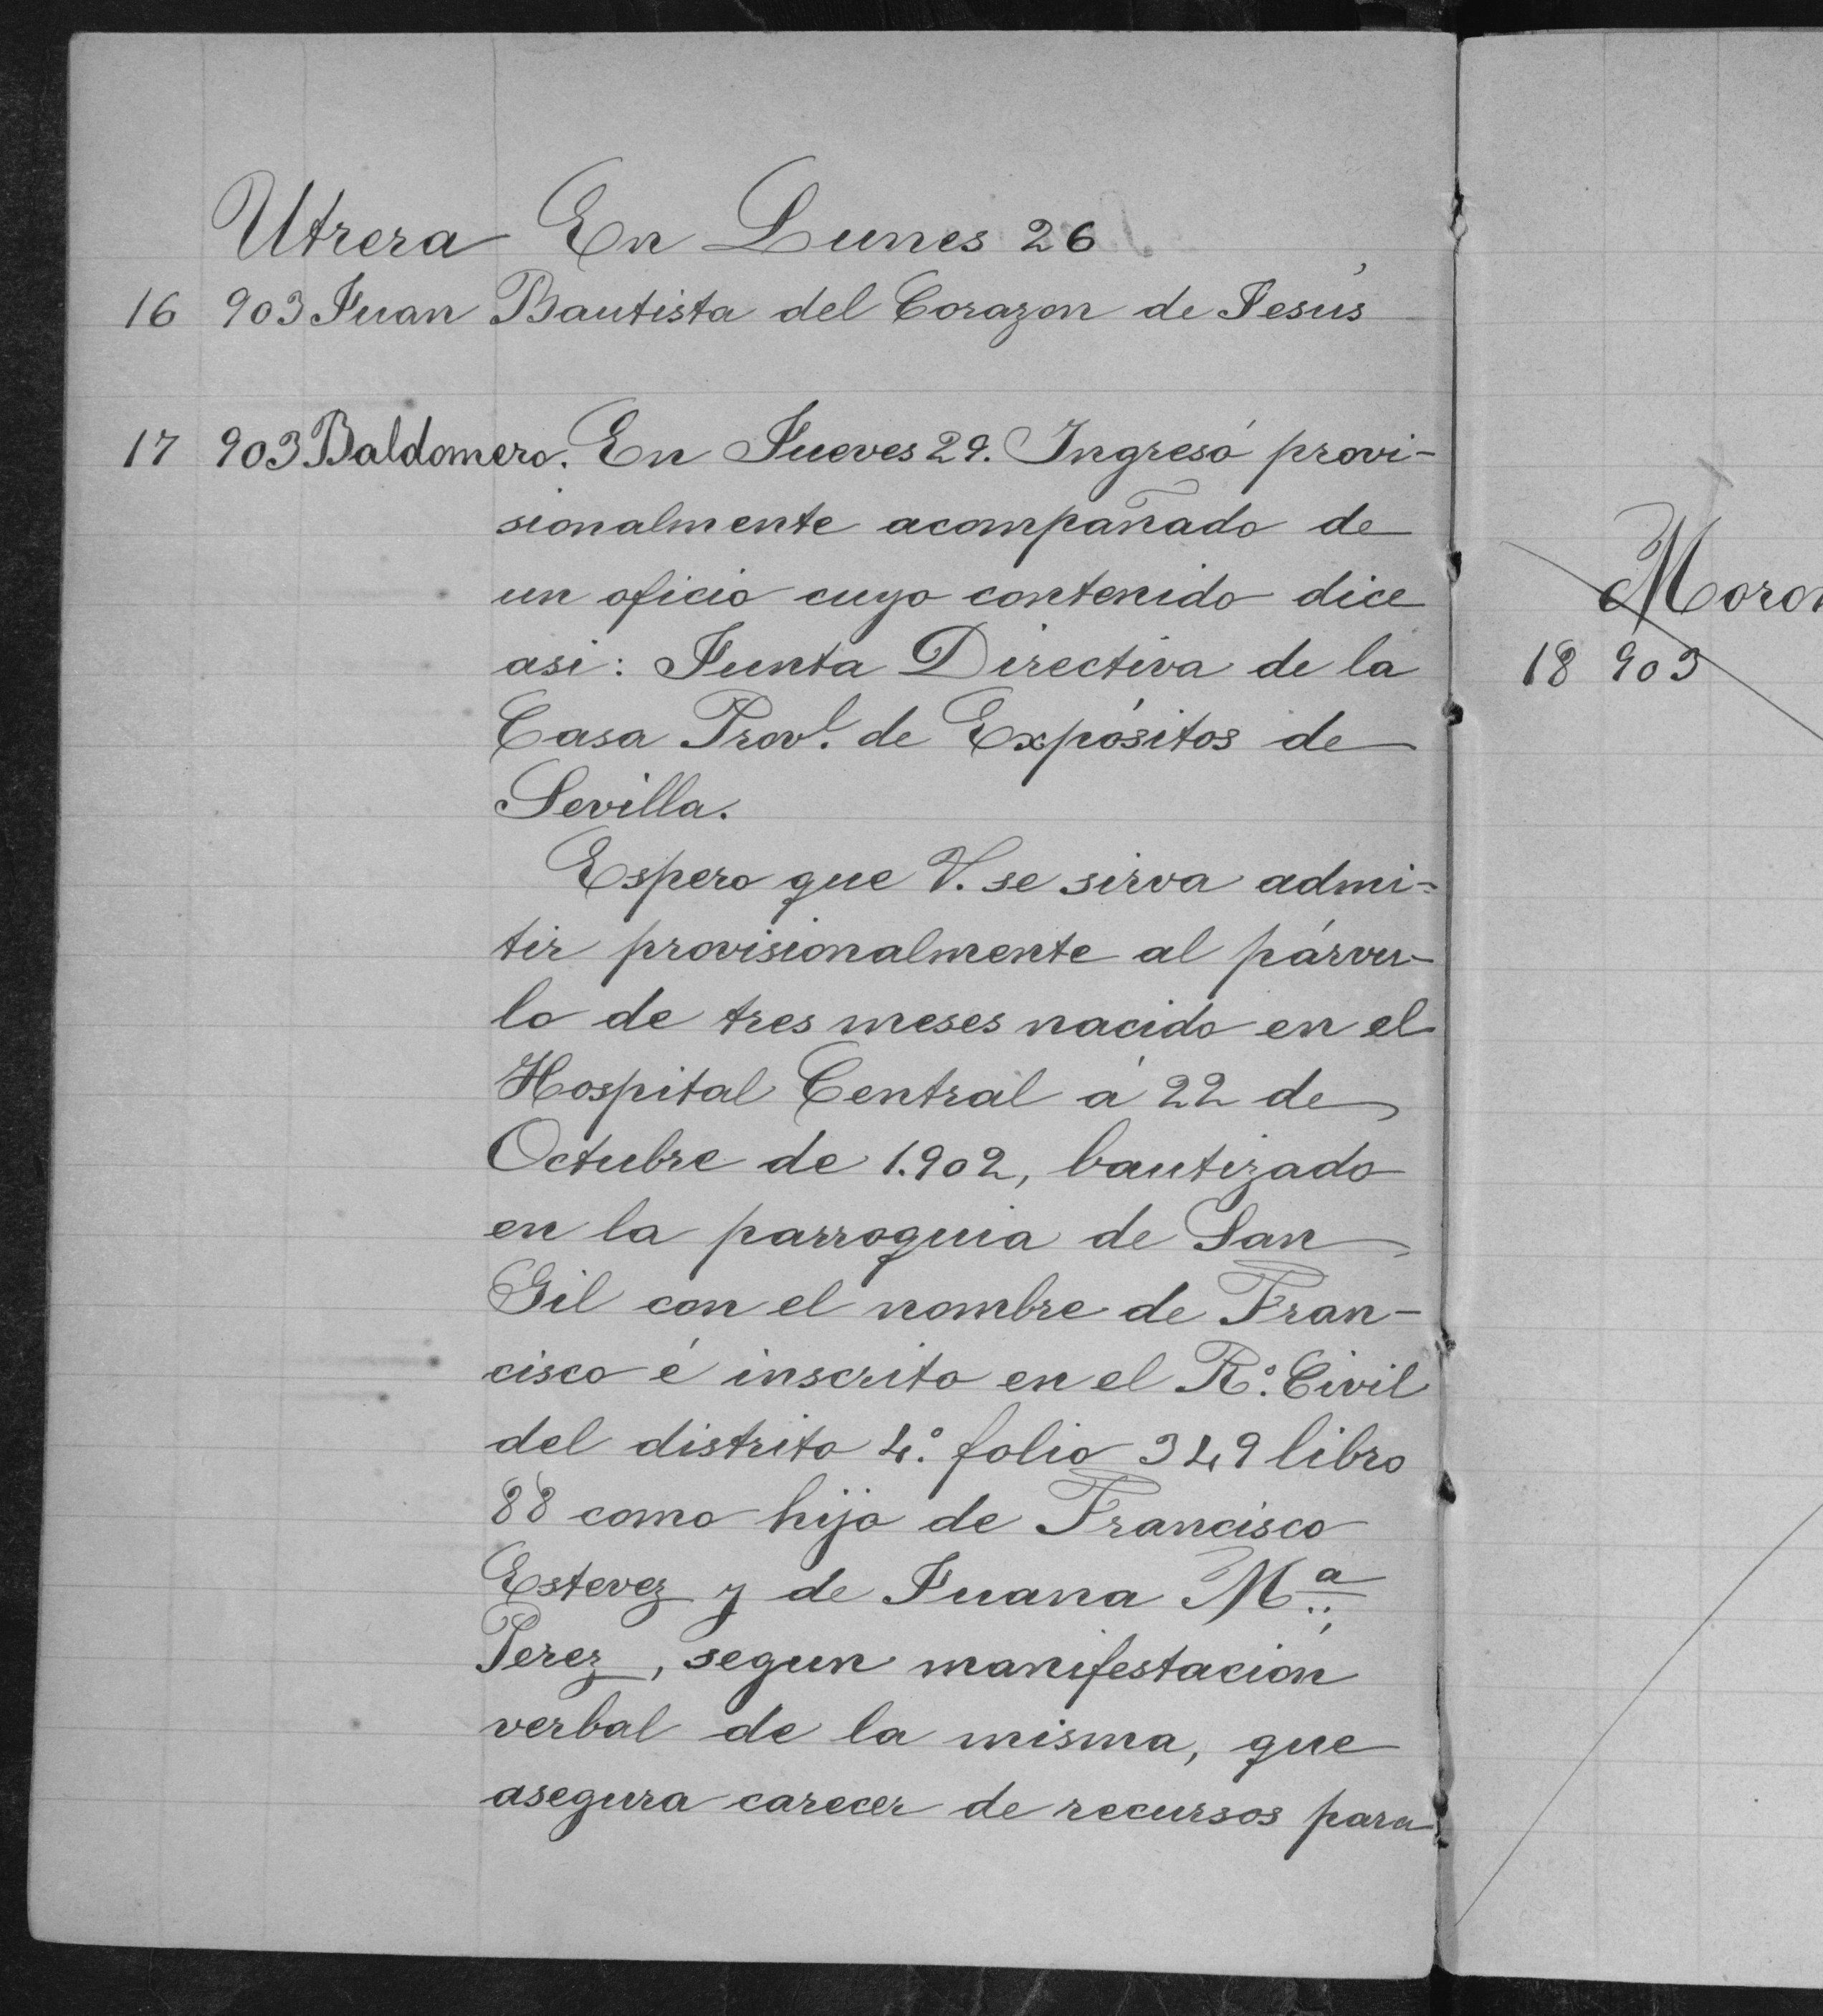 Utrera En Lunes 26
16 903 Juan Bautista del Corazon de Jesús
17 903 Baldomero. En Jueves 29. Ingresó provi-
sionalmente acompañado de
un oficio cuyo contenido dice
asi: Junta Directiva de la
Casa Provl. de Expósitos de
Sevilla.
Espero que V. se sirva admi-
tir provisionalmente al párvu-
lo de tres meses nacido en el
Hospital Central á 22 de
Octubre de 1.902, bautizado
en la parroquia de San
Gil con el nombre de Fran-
cisco é inscrito en el Rº. Civil
del distrito 4.º folio 349 libro
88 como hijo de Francisco
Estevez y de Juana Mª
Perez, segun manifestación
verbal de la misma, que
asegura carecer de recursos para
Moron
18 903